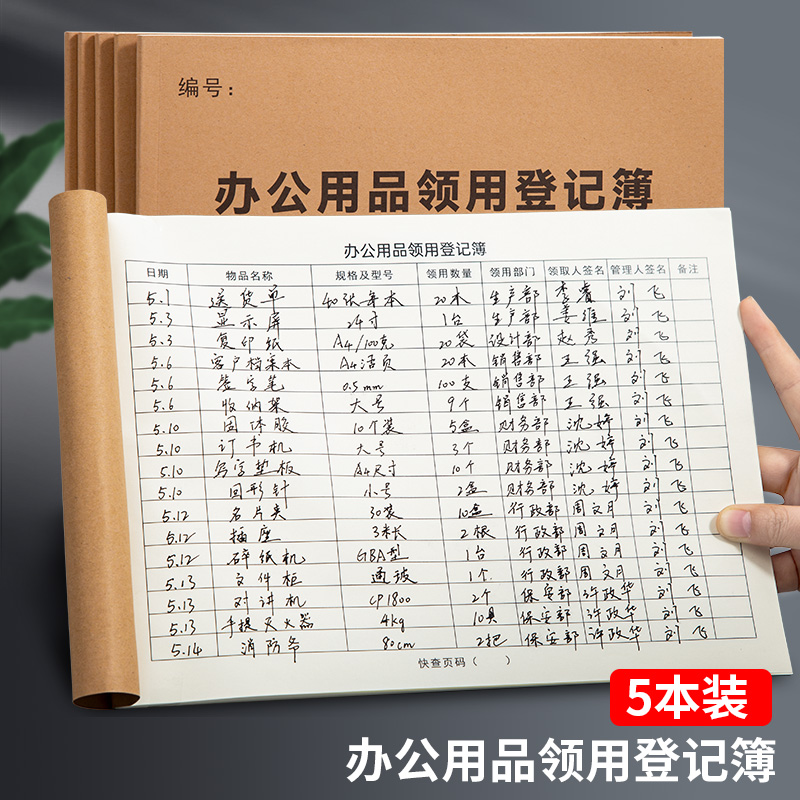 编号：
办公用品领用登记簿
办公用品领用登记簿
日期 物品名称 规格及型号 领用数量 领用部门 领取人签名 管理人签名 备注
5.1 送货单 40张每本 20本 生产部 李睿 刘飞
5.3 显示屏 24寸 1台 生产部 姜维 刘飞
5.3 复印纸 A4/100克 20袋 设计部 赵秀 刘飞
5.6 客户档案本 A4活页 20本 销售部 王强 刘飞
5.6 签字笔 0.5mm 100支 销售部 王强 刘飞
5.6 收纳架 大号 9个 销售部 王强 刘飞
5.10 固体胶 10个装 5盒 财务部 沈婷 刘飞
5.10 订书机 大号 3个 财务部 沈婷 刘飞
5.10 写字垫板 A4尺寸 10个 财务部 沈婷 刘飞
5.10 回形针 小号 2盒 财务部 沈婷 刘飞
5.12 名片夹 30装 10盒 行政部 周文月 刘飞
5.12 插座 3米长 2根 行政部 周文月 刘飞
5.12 碎纸机 GBA型 1台 行政部 周文月 刘飞
5.13 文件柜 通玻 1个 行政部 周文月 刘飞
5.13 对讲机 CP1800 2个 保安部 许政华 刘飞
5.13 手提灭火器 4kg 10具 保安部 许政华 刘飞
5.14 消防斧 80cm 2把 保安部 许政华 刘飞
快查页码（ ）
5本装
办公用品领用登记簿